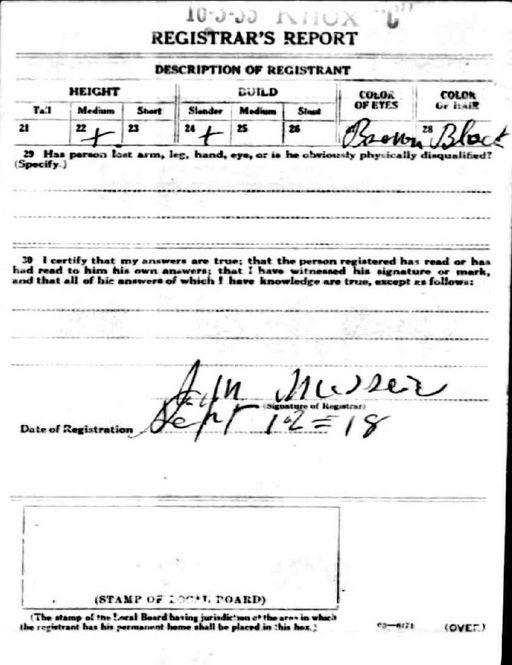 10-3-35 KNOX "C"
REGISTRAR'S REPORT
DESCRIPTION OF REGISTRANT
HEIGHT BUILD COLOR OF EYES COLOR OF HAIR
Tall Medium Short Slender Medium Stout
21 22 + 23 24 + 25 26 Brown 28 Black
29 Has person lost arm, leg, hand, eye, or is he obviously physically disqualified?
(Specify.)
30 I certify that my answers are true; that the person registered has read or has
had read to him his own answers; that I have witnessed his signature or mark,
and that all of his answers of which I have knowledge are true, except as follows:
(Signature of Registrar)
Date of Registration Sept 12 = 18
(STAMP OF LOCAL BOARD)
(The stamp of the Local Board having jurisdiction of the area in which
the registrant has his permanent home shall be placed in this box.)
(OVER)